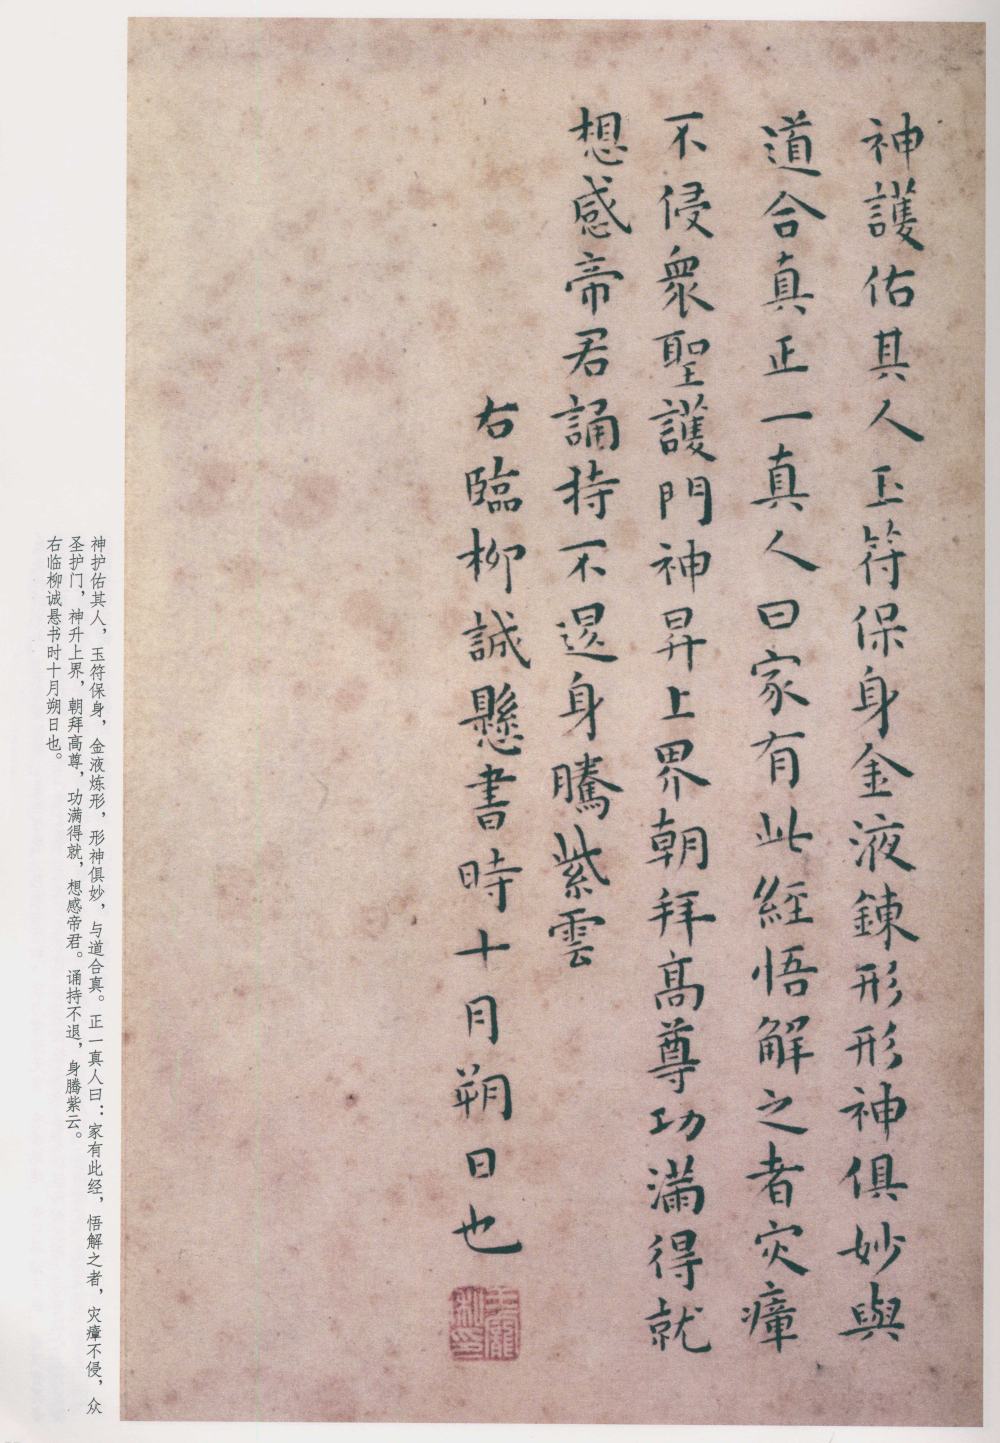 神護佑其人玉符保身金液鍊形形神俱妙與
道合真正一真人曰家有此經悟解之者灾瘴
不侵衆聖護門神昇上界朝拜高尊功滿得就
想感帝君誦持不退身騰紫雲
右臨柳誠懸書時十月朔日也
王寵私印
神护佑其人，玉符保身，金液炼形，形神俱妙，与道合真。正一真人曰：家有此经，悟解之者，灾瘴不侵，众
圣护门，神升上界，朝拜高尊，功满得就，想感帝君。诵持不退，身腾紫云。
右临柳诚悬书时十月朔日也。